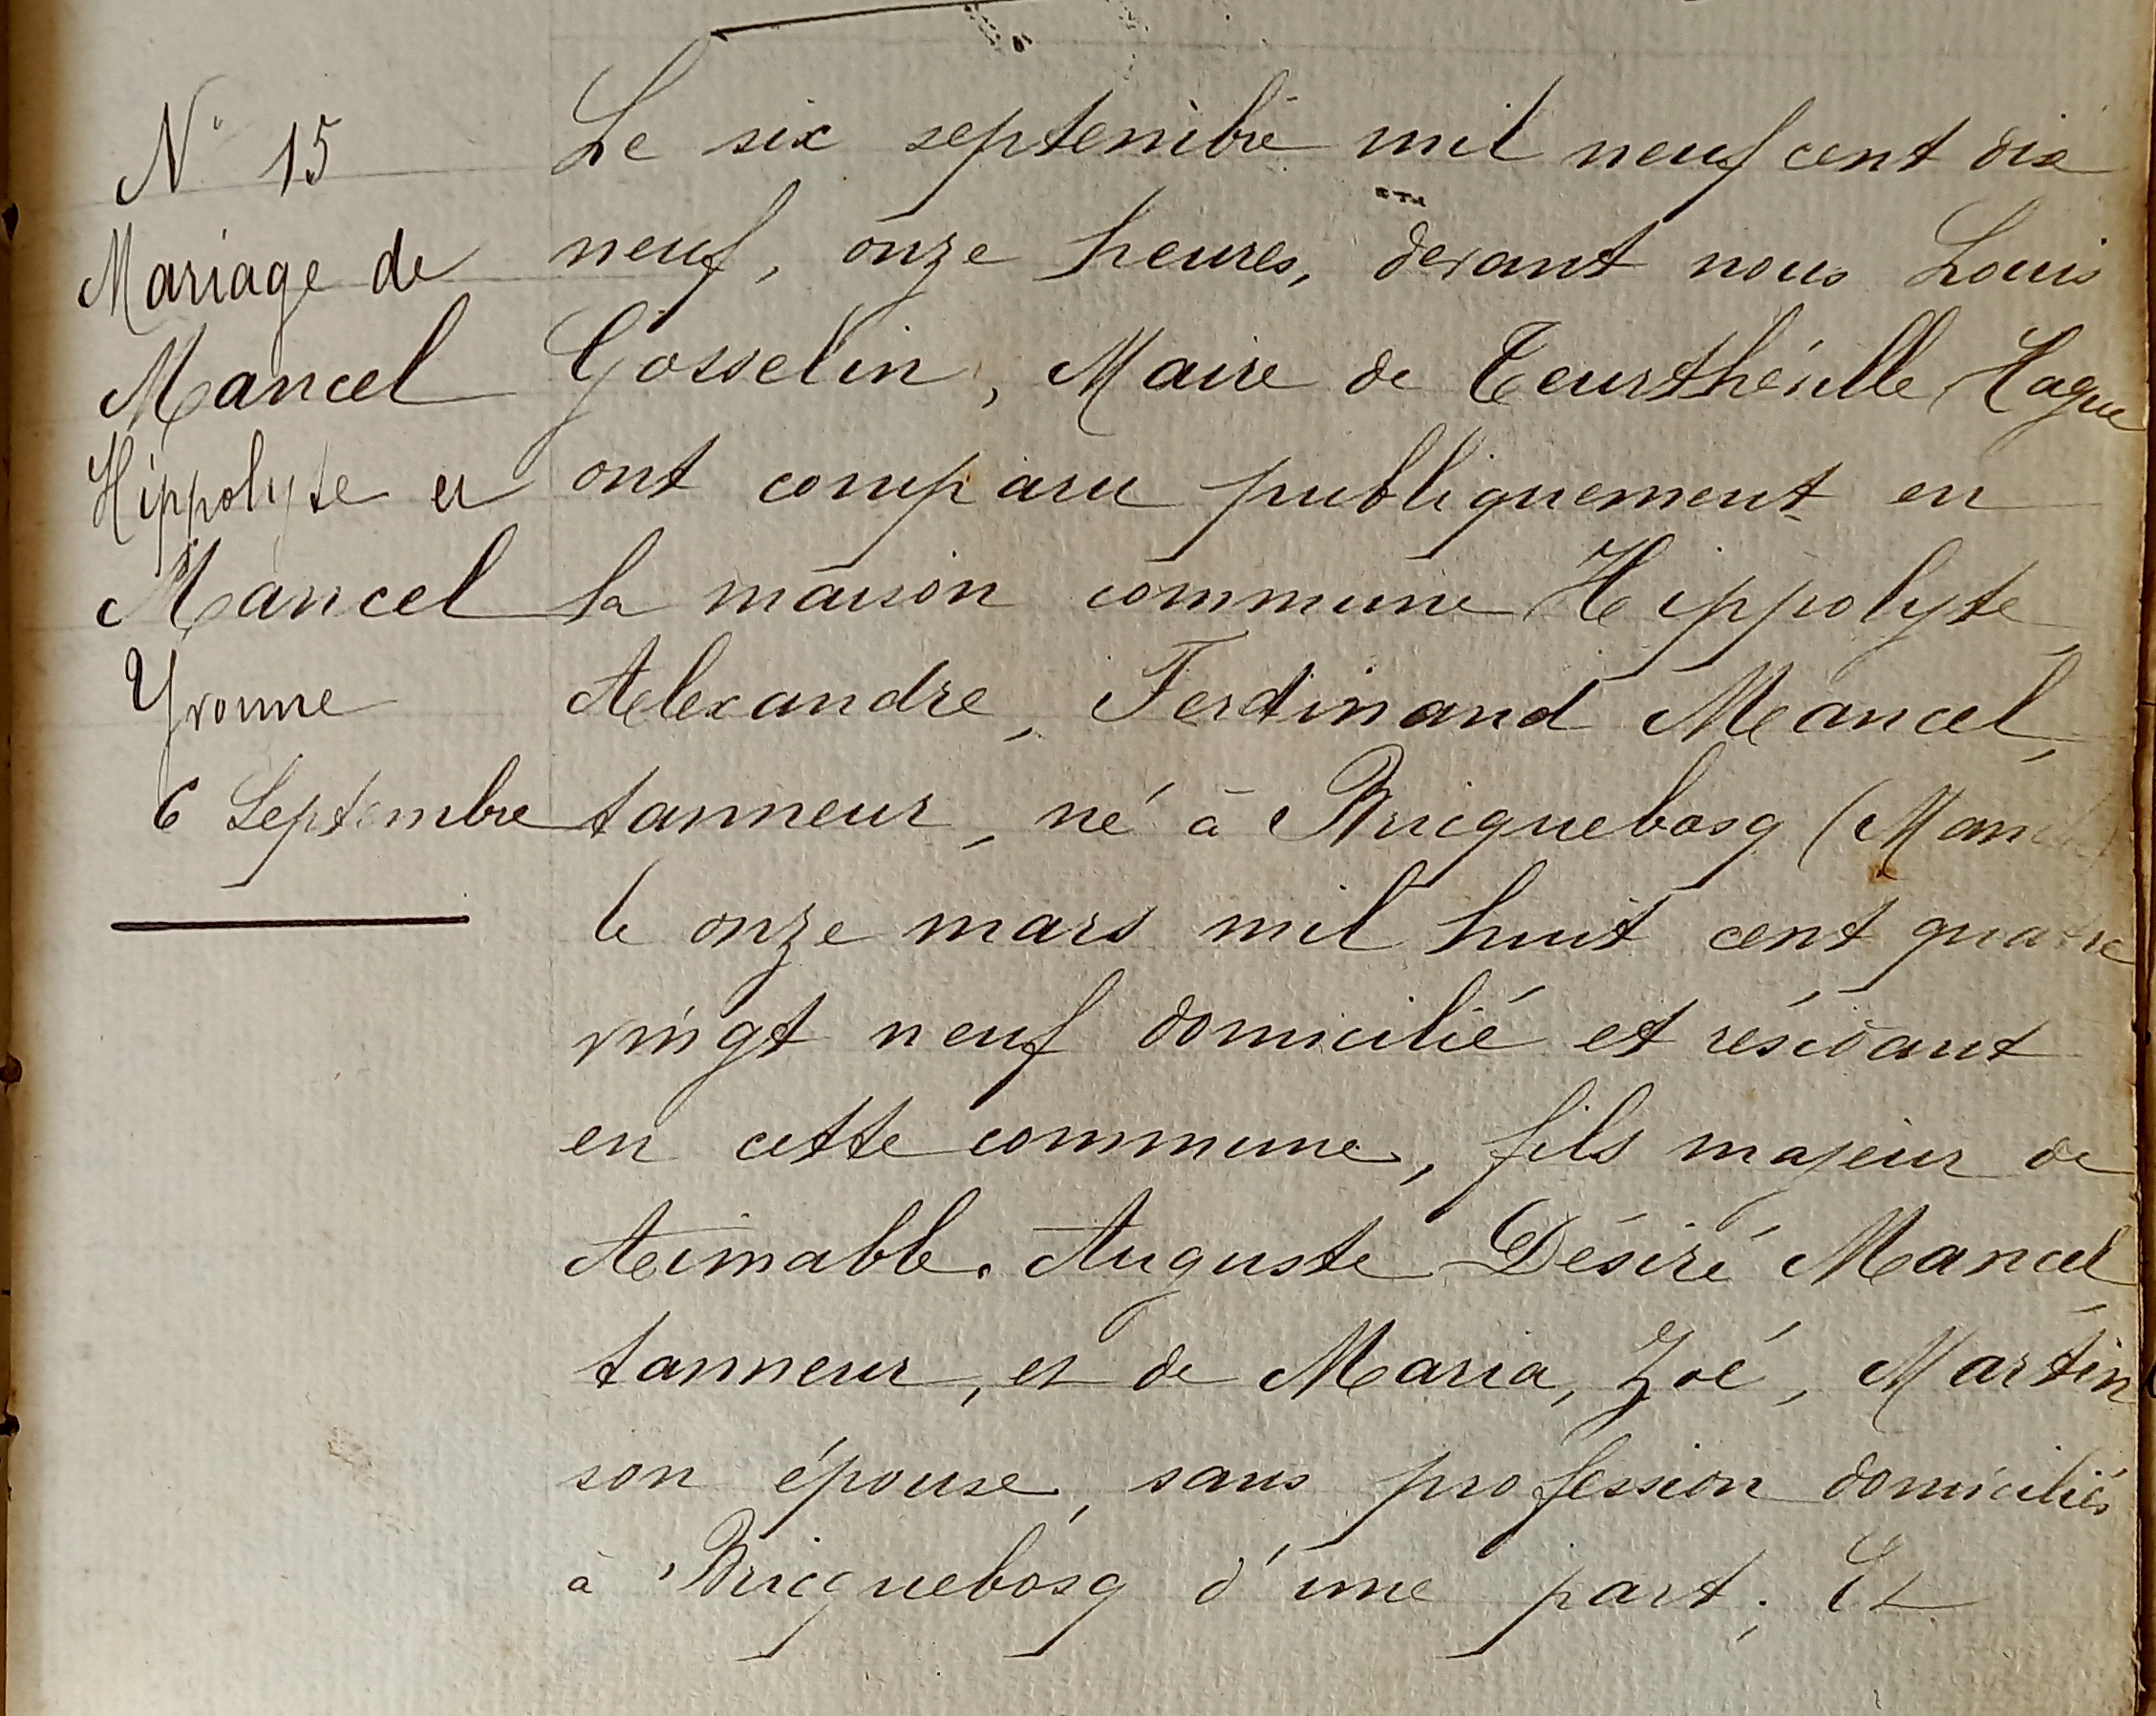 N° 15
Mariage de
Mancel
Hippolyte et
Mancel
Yvonne
6 Septembre
Le six septembre mil neuf cent dix
neuf, onze heures, devant nous Louis
Gosselin, Maire de Teurthéville Hague
ont comparu publiquement en
la maison commune Hippolyte
Alexandre, Ferdinand Mancel,
tanneur, né à Bricquebosq (Manche)
le onze mars mil huit cent quatre
vingt neuf domicilié et résidant
en cette commune, fils majeur de
Aimable. Auguste Désiré Mancel
tanneur, et de Maria, Zoé, Martin
son épouse, sans profession domiciliés
à Bricquebosq d'une part; Et